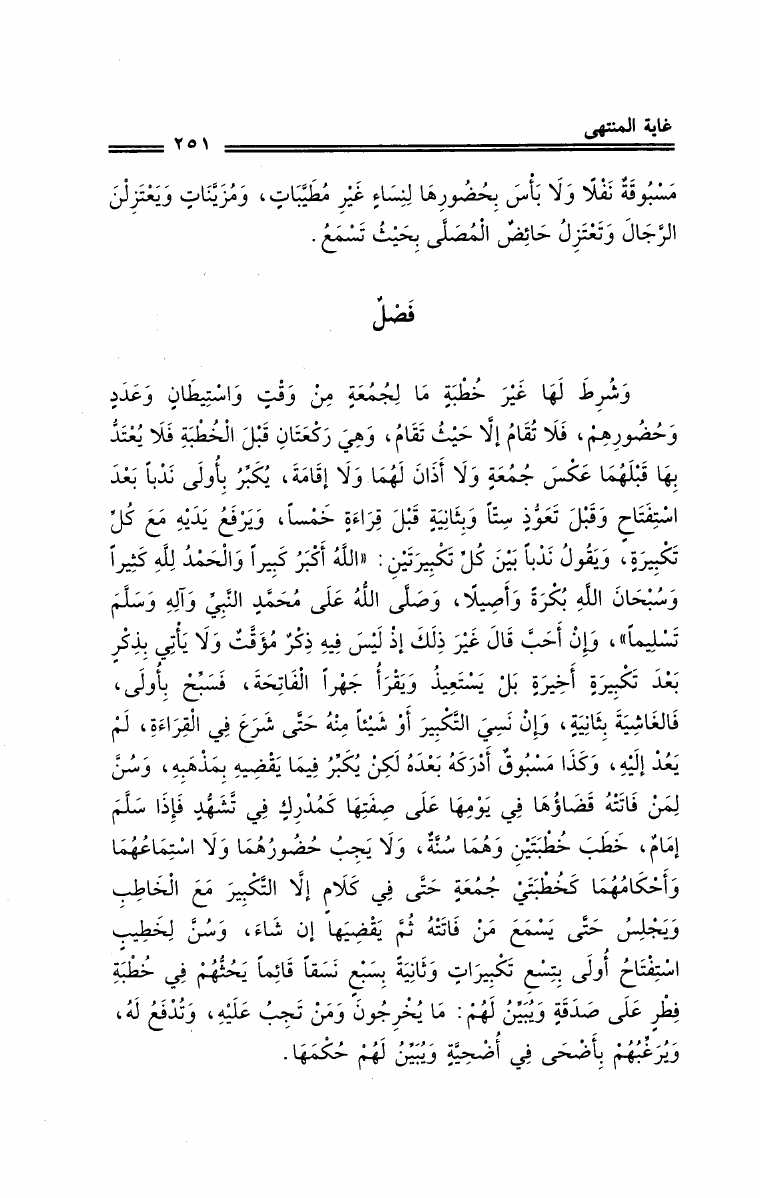 غاية المنتهى
٢٥١
مَسْبُوقَةٌ نَفْلًا وَلَا بَأْسَ بِحُضُورِهَا لِنِسَاءٍ غَيْرِ مُطَيَّبَاتٍ، وَمُزَيَّنَاتٍ وَيَعْتَزِلْنَ
الرِّجَالَ وَتَعْتَزِلُ حَائِضٌ الْمُصَلَّى بِحَيْثُ تَسْمَعُ.
فَصْلٌ
وَشُرِطَ لَهَا غَيْرَ خُطْبَةٍ مَا لِجُمُعَةٍ مِنْ وَقْتٍ وَاسْتِيطَانٍ وَعَدَدٍ
وَحُضُورِهِمْ، فَلَا تُقَامُ إلَّا حَيْثُ تُقَامُ، وَهِيَ رَكْعَتَانِ قَبْلَ الْخُطْبَةِ فَلَا يُعْتَدُّ
بِهَا قَبْلَهُمَا عَكْسَ جُمُعَةٍ وَلَا أَذَانَ لَهُمَا وَلَا إقَامَةَ، يُكَبِّرُ بِأُولَى نَدْباً بَعْدَ
اسْتِفْتَاحٍ وَقَبْلَ تَعَوُّذٍ سِتّاً وَبِثَانِيَةٍ قَبْلَ قِرَاءَةٍ خَمْساً، وَيَرْفَعُ يَدَيْهِ مَعَ كُلِّ
تَكْبِيرَةٍ، وَيَقُولُ نَدْباً بَيْنَ كُلِّ تَكْبِيرَتَيْنِ: «اللَّهُ أَكْبَرُ كَبِيراً وَالْحَمْدُ لِلَّهِ كَثِيراً
وَسُبْحَانَ اللَّهِ بُكْرَةً وَأَصِيلًا، وَصَلَّى اللَّهُ عَلَى مُحَمَّدٍ النَّبِيِّ وَآلِهِ وَسَلَّمَ
تَسْلِيماً»، وَإِنْ أَحَبَّ قَالَ غَيْرَ ذَلِكَ إذْ لَيْسَ فِيهِ ذِكْرٌ مُؤَقَّتٌ وَلَا يَأْتِي بِذِكْرٍ
بَعْدَ تَكْبِيرَةٍ أَخِيرَةٍ بَلْ يَسْتَعِيذُ وَيَقْرَأُ جَهْراً الْفَاتِحَةَ، فَسَبِّحْ بِأُولَى،
فَالْغَاشِيَةَ بِثَانِيَةٍ، وَإِنْ نَسِيَ التَّكْبِيرَ أَوْ شَيْئاً مِنْهُ حَتَّى شَرَعَ فِي الْقِرَاءَةِ، لَمْ
يَعُدْ إلَيْهِ، وَكَذَا مَسْبُوقٌ أَدْرَكَهُ بَعْدَهُ لَكِنْ يُكَبِّرُ فِيمَا يَقْضِيهِ بِمَذْهَبِهِ، وَسُنَّ
لِمَنْ فَاتَتْهُ قَضَاؤُهَا فِي يَوْمِهَا عَلَى صِفَتِهَا كَمُدْرِكٍ فِي تَشَهُّدٍ فَإِذَا سَلَّمَ
إمَامٌ، خَطَبَ خُطْبَتَيْنِ وَهُمَا سُنَّةٌ، وَلَا يَجِبُ حُضُورُهُمَا وَلَا اسْتِمَاعُهُمَا
وَأَحْكَامُهُمَا كَخُطْبَتَيْ جُمُعَةٍ حَتَّى فِي كَلَامٍ إلَّا التَّكْبِيرَ مَعَ الْخَاطِبِ
وَيَجْلِسُ حَتَّى يَسْمَعَ مَنْ فَاتَتْهُ ثُمَّ يَقْضِيَهَا إن شَاءَ، وَسُنَّ لِخَطِيبٍ
اسْتِفْتَاحُ أُولَى بِتِسْعِ تَكْبِيرَاتٍ وَثَانِيَةً بِسَبْعٍ نَسَقاً قَائِماً يَحُثُّهُمْ فِي خُطْبَةِ
فِطْرٍ عَلَى صَدَقَةٍ وَيُبَيِّنُ لَهُمْ: مَا يُخْرِجُونَ وَمَنْ تَجِبُ عَلَيْهِ، وَتُدْفَعُ لَهُ،
وَيُرَغِّبُهُمْ بِأَضْحَى فِي أُضْحِيَّةٍ وَيُبَيِّنُ لَهُمْ حُكْمَهَا.